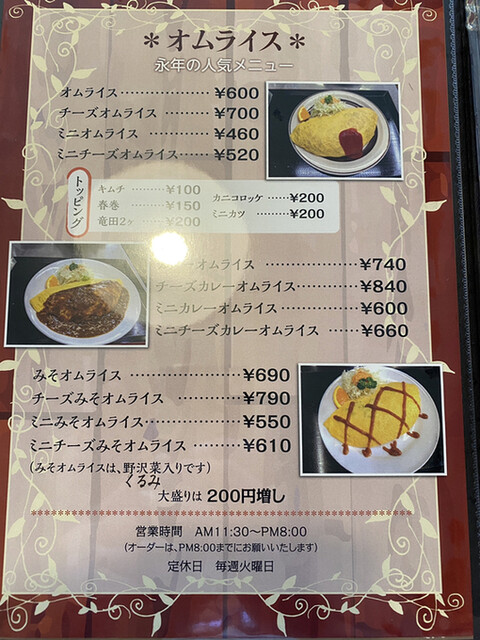 ＊オムライス＊
永年の人気メニュー
オムライス……………¥600
チーズオムライス………¥700
ミニオムライス…………¥460
ミニチーズオムライス……¥520
トッピング
キムチ………¥100
春巻…………¥150
竜田2ヶ……¥200
カニコロッケ……¥200
ミニカツ………¥200
カレーオムライス……………¥740
チーズカレーオムライス………¥840
ミニカレーオムライス…………¥600
ミニチーズカレーオムライス……¥660
みそオムライス……………¥690
チーズみそオムライス………¥790
ミニみそオムライス…………¥550
ミニチーズみそオムライス……¥610
(みそオムライスは、野沢菜入りです)
くるみ
大盛りは 200円増し
営業時間　AM11:30～PM8:00
(オーダーは、PM8:00までにお願いいたします)
定休日　毎週火曜日